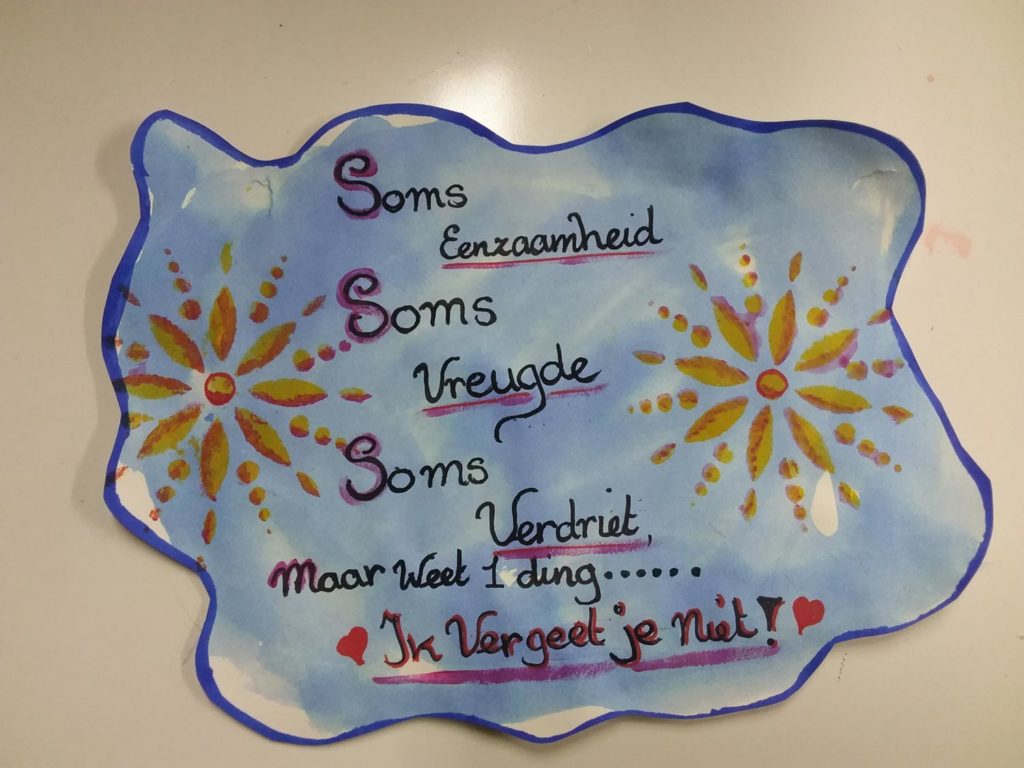 Soms
Eenzaamheid
Soms
Vreugde
Soms
Verdriet,
Maar Weet 1 ding......
Ik Vergeet je Niet!